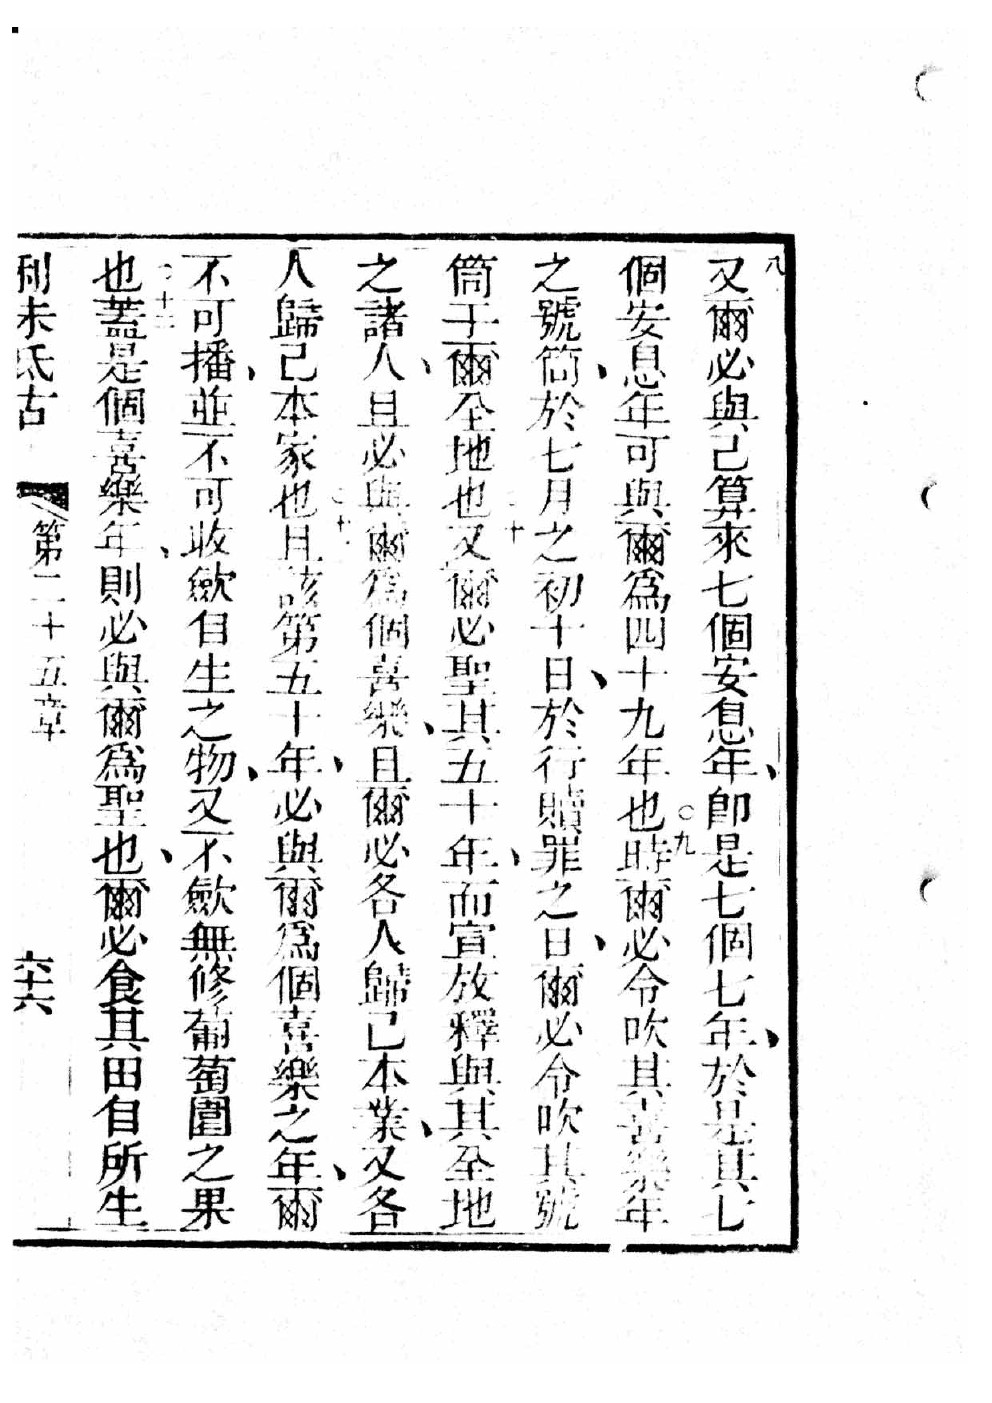 八又爾必與己算來七個安息年、卽是七個七年、於是其七
個安息年可與爾爲四十九年也○九時爾必令吹其喜樂年
之號筒、於七月之初十日、於行贖罪之日、爾必令吹其號
筒于爾全地也○十又爾必聖其五十年、而宣放釋與其全地
之諸人、且必與爾爲個喜樂、且爾必各人歸己本業、又各
人歸己本家也○十一且該第五十年、必與爾爲個喜樂之年、爾
不可播、並不可收歛自生之物、又不歛無修葡萄園之果
也○十二蓋是個喜樂年、則必與爾爲聖也、爾必食其田自所生
利未氏古
第二十五章
六十六